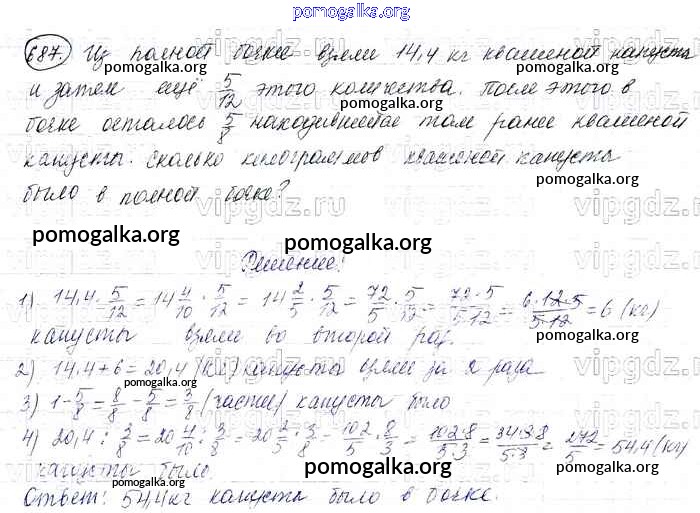 pomogalka.org
687. Из полной бочки взяли 14,4 кг квашеной капусты
pomogalka.org pomogalka.org
и затем ещё 5/12 этого количества. После этого в
pomogalka.org
бочке осталось 5/8 находившейся там ранее квашеной
капусты. Сколько килограммов квашеной капусты
pomogalka.org
было в полной бочке?
vipgdz.ru vipgdz.ru vipgdz.ru
pomogalka.org pomogalka.org
Решение:
1) 14,4 · 5/12 = 14 4/10 · 5/12 = 14 2/5 · 5/12 = 72/5 · 5/12 = 72·5/5·12 = 6·12·5/5·12 = 6 (кг)
капусты взяли во второй раз.
2) 14,4 + 6 = 20,4 (кг) капусты взяли за 2 раза
pomogalka.org pomogalka.org
3) 1 - 5/8 = 8/8 - 5/8 = 3/8 (части) капусты было
pomogalka.org
4) 20,4 : 3/8 = 20 4/10 : 3/8 = 20 2/5 : 3/8 = 102/5 · 8/3 = 102·8/5·3 = 34·3·8/5·3 = 272/5 = 54,4 (кг)
капусты было.
pomogalka.org pomogalka.org
Ответ: 54,4 кг капусты было в бочке.